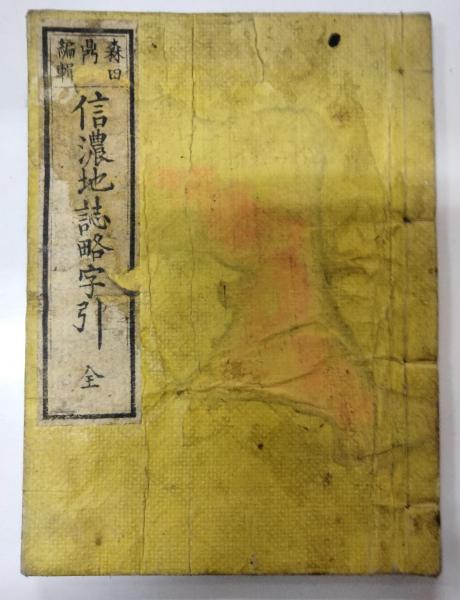 森田
鼎
編輯
信濃地誌略字引 全